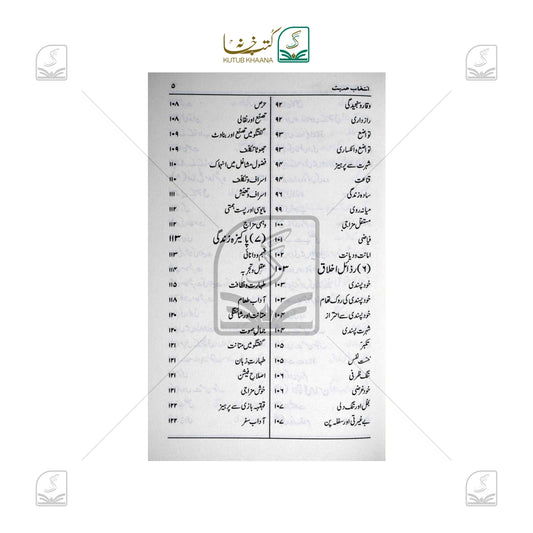 کتب خانہ
KUTUB KHAANA
انتخاب حدیث ۵
وقار و سنجیدگی ۹۲
رازداری ۹۲
تواضع ۹۳
تواضع و انکساری ۹۳
شہرت سے پرہیز ۹۴
قناعت ۹۴
سادہ زندگی ۹۶
میانہ روی ۹۹
مستقل مزاجی ۱۰۰
فیاضی ۱۰۱
امانت و دیانت ۱۰۲
(۶) رذائل اخلاق ۱۰۳
خود پسندی ۱۰۳
خود پسندی کی روک تھام ۱۰۳
خود پسندی سے احتراز ۱۰۴
شہرت پسندی ۱۰۴
تکبر ۱۰۵
خست نفس ۱۰۵
تنگ ظرفی ۱۰۶
خود غرضی ۱۰۶
بخل اور تنگ دلی ۱۰۷
بے غیرتی اور سفلہ پن ۱۰۷
حرص ۱۰۸
تصنع اور نقالی ۱۰۸
گفتگو میں تصنع اور بناوٹ ۱۰۹
جھوٹا تکلف ۱۰۹
فضول مشاغل میں انہماک ۱۱۰
اسراف و تکلف ۱۱۰
اسراف و تعیش ۱۱۱
مایوسی اور پست ہمتی ۱۱۲
وہمی مزاج ۱۱۲
(۷) پاکیزہ زندگی ۱۱۳
فہم و دانائی ۱۱۳
عقل و تجربہ ۱۱۴
طہارت و نظافت ۱۱۵
آداب طعام ۱۱۸
متانت اور شائستگی ۱۲۰
جمال صوت ۱۲۰
گفتگو میں متانت ۱۲۱
طہارت زبان ۱۲۱
اصلاح فیشن ۱۲۱
خوش مزاجی ۱۲۱
قہقہہ بازی سے پرہیز ۱۲۲
آداب سفر ۱۲۲